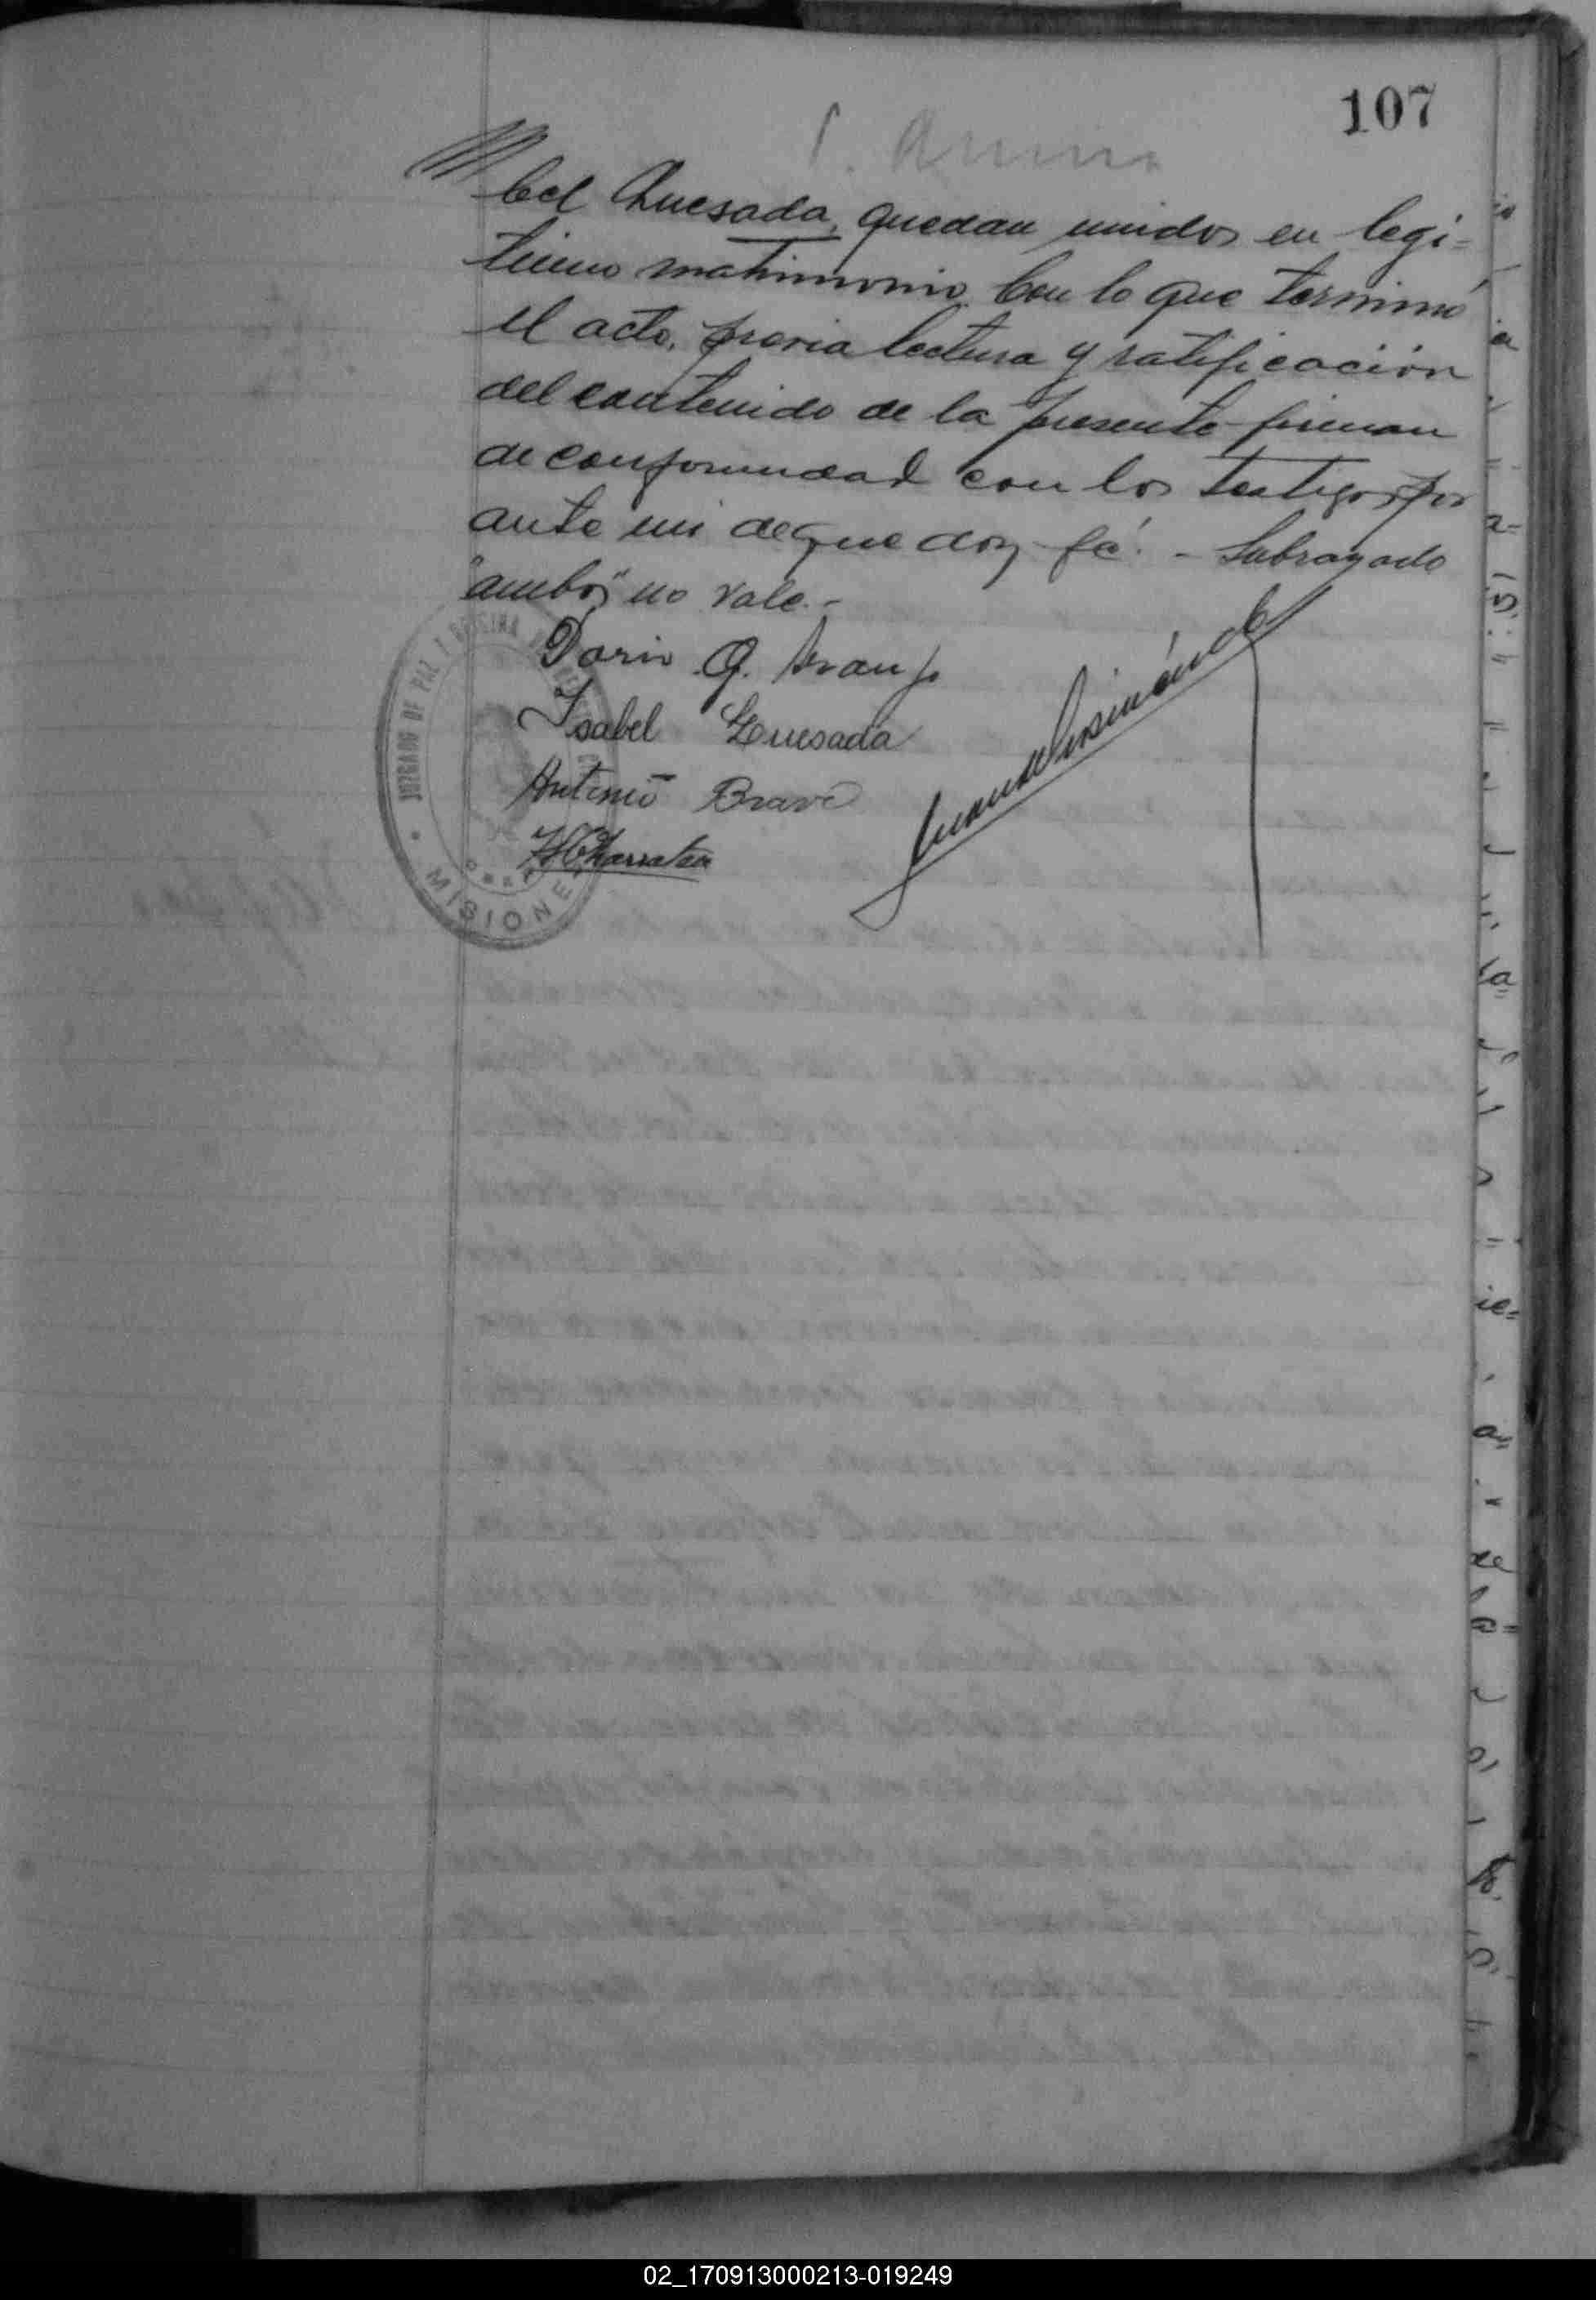 107
bel Quesada, quedan unidos en legi=
timo matrimonio. Con lo que terminó
el acto, previa lectura y ratificación
del contenido de la presente firman
de conformidad con los testigos por
ante mi de que doy fé. - Subrayado
"ambos" no vale.-
Dario G. Araujo
Isabel Quesada
Antonio Bravo
JUZGADO DE PAZ Y OFICINA
MISIONES
02_170913000213-019249